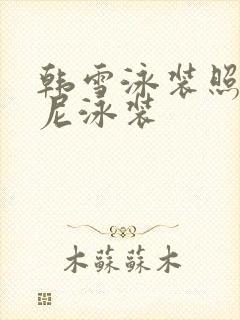 韩雪泳装照
尼泳装
木蘇蘇木